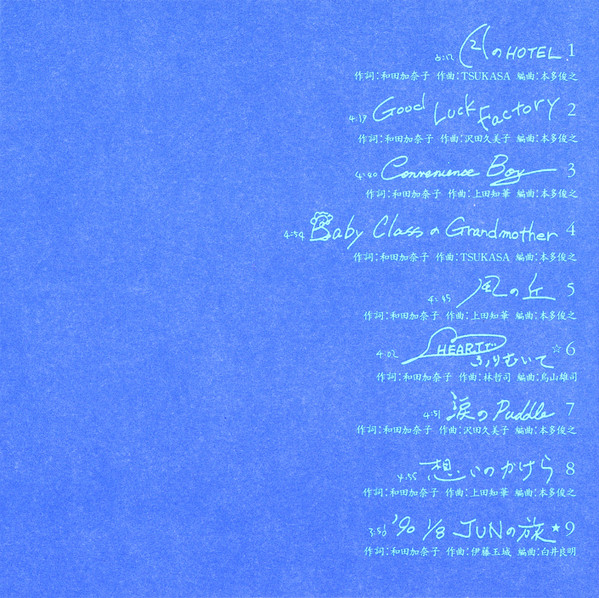 6:17 月のHOTEL. 1
作詞:和田加奈子 作曲:TSUKASA 編曲:本多俊之
4:19 Good Luck Factory 2
作詞:和田加奈子 作曲:沢田久美子 編曲:本多俊之
4:40 Convenience Boy 3
作詞:和田加奈子 作曲:上田知華 編曲:本多俊之
4:54 Baby Class の Grandmother 4
作詞:和田加奈子 作曲:TSUKASA 編曲:本多俊之
4:45 風の丘 5
作詞:和田加奈子 作曲:上田知華 編曲:本多俊之
4:02 HEARTでふりむいて ☆6
作詞:和田加奈子 作曲:林哲司 編曲:鳥山雄司
4:51 涙のPuddle 7
作詞:和田加奈子 作曲:沢田久美子 編曲:本多俊之
4:55 想いのかけら 8
作詞:和田加奈子 作曲:上田知華 編曲:本多俊之
3:50 '90 1/8 JUNの旅 ★9
作詞:和田加奈子 作曲:伊藤玉城 編曲:白井良明